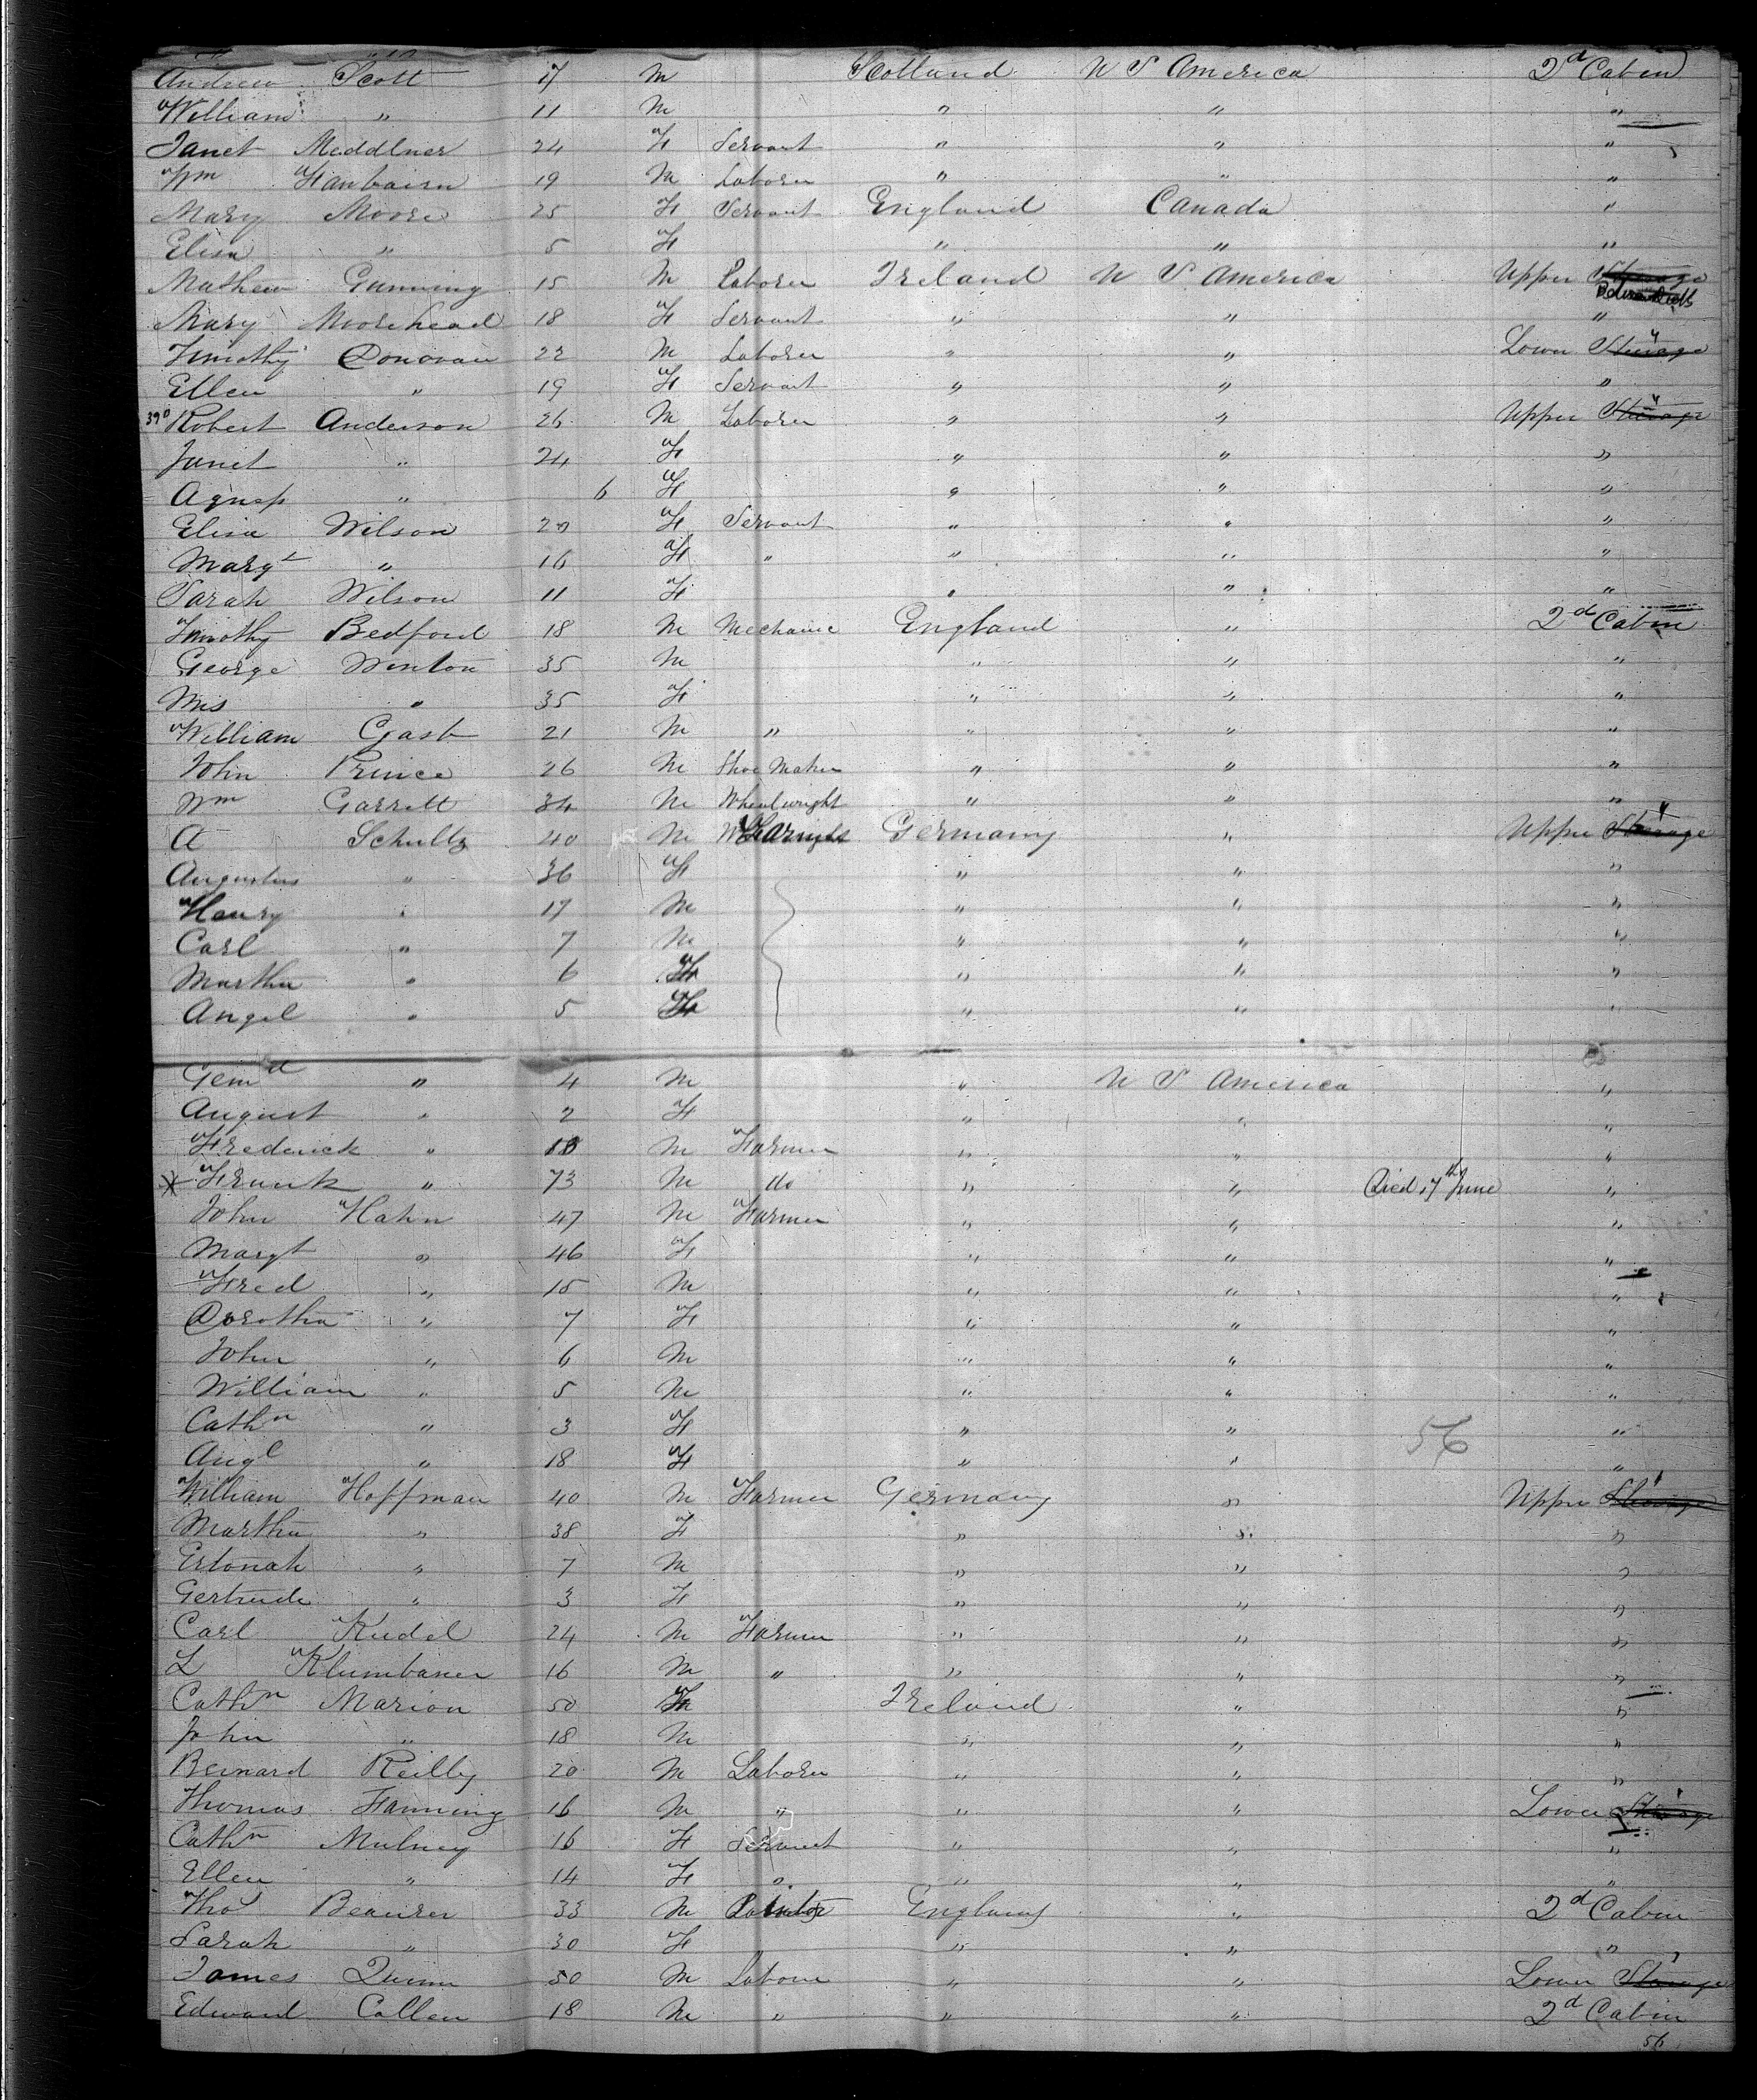 Andrew Scott 17 M Scotland U S America 2d Cabin
William " 11 M " " "
Janet Meddlner 24 F Servant " " "
Wm Fairbairn 19 M Laborer " " "
Mary Moore 25 F Servant England Canada "
Elisa " 5 F " " "
Mathew Gunning 15 M Laborer Ireland U S America Upper Steerage
Between Decks
Mary Moorehead 18 F Servant " " "
Timothy Donovan 22 M Laborer " " Lower Steerage "
Ellen " 19 F Servant " " "
390 Robert Anderson 26 M Laborer " " Upper Steerage "
Janet " 24 F " " "
Agness " 6 F " " "
Elisa Wilson 20 F Servant " " "
Margt " 16 F " " " "
Sarah Wilson 11 F " " "
Timothy Bedford 18 M Mechanic England " 2d Cabin
George Winton 35 M " " "
Mrs " 35 F " " "
William Gast 21 M " " " "
John Prince 26 M Shoe Maker " " "
Wm Garrett 34 M Wheelwright " " "
A Schultz 40 M Germany " Upper Steerage "
Augustus " 36 F " " "
Henry " 17 M " " "
Carl " 7 M " " "
Martha " 6 F " " "
Angel " 5 F " " "
" 4 M " U S America "
August " 2 F " " "
Frederick " 10 M Farmer " " "
Frank " 73 M do " " Died 17th June "
John Hahn 47 M Farmer " " "
Margt " 46 F " " "
Fred " 15 M " " "
Dorothea " 7 F " " "
John " 6 M " " "
William " 5 M " " "
Cathn " 3 F " " "
56
Angl " 18 F " " "
William Hoffman 40 M Farmer Germany " Upper Steerage "
Martha " 38 F " " "
Ertonah " 7 M " " "
Gertrude " 3 F " " "
Carl Kudel 24 M Farmer " " "
L Klumbaner 16 M " " " "
Cathn Marion 50 F Ireland " "
John " 18 M " " "
Bernard Reilly 20 M Laborer " " "
Thomas Fanning 16 M " " " Lower Steerage "
Cathn Mulney 16 F Servant " " "
Ellen " 14 F " " " "
Thos Beaurer 33 M England " 2d Cabin
Sarah " 30 F " " "
James Quinn 50 M Laborer " " Lower Steerage "
Edward Collen 18 M " " " 2d Cabin
56